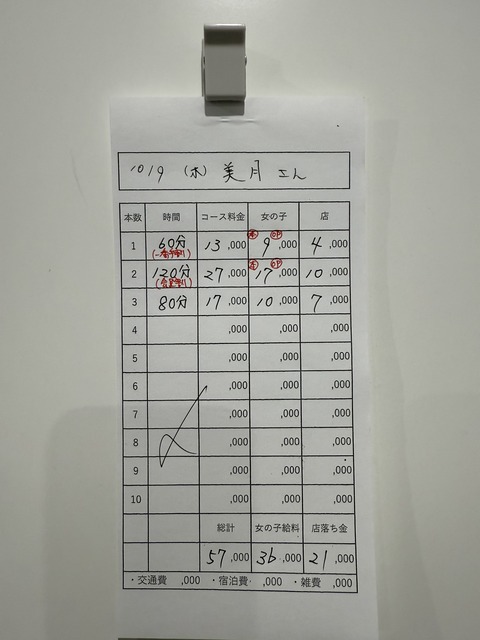 10/9 (木) 美月さん
本数 時間 コース料金 女の子 店
1 60分 13,000 9,000 4,000
2 120分 27,000 17,000 10,000
3 80分 17,000 10,000 7,000
4 ,000 ,000 ,000
5 ,000 ,000 ,000
6 ,000 ,000 ,000
7 ,000 ,000 ,000
8 ,000 ,000 ,000
9 ,000 ,000 ,000
10 ,000 ,000 ,000
総計 女の子給料 店落ち金
57,000 36,000 21,000
・交通費 ,000 ・宿泊費 ,000 ・雑費 ,000